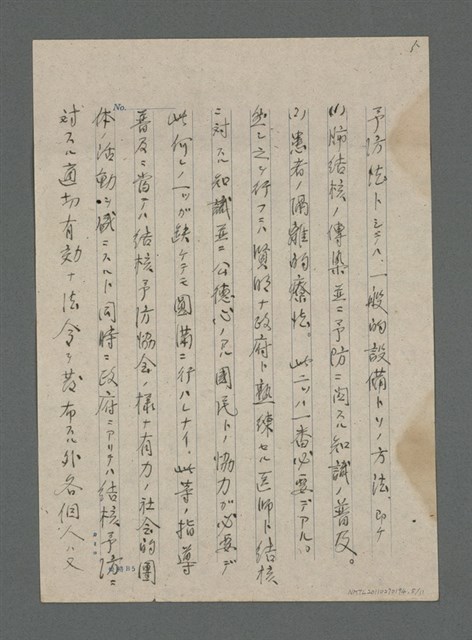 予防法トシテハ、一般的設備トソノ方法、即チ
(1) 肺結核ノ傳染並ニ予防ニ関スル知識ノ普及。
(2) 患者ノ隔離的療法。此二ツハ一番必要デアル。
然シ之ヲ行フニハ賢明ナ政府ト熟練セル医師ト結核
ニ対スル知識並ニ公德心ノアル國民トノ協力ガ必要デ
此何レノ一ツガ缺ケテモ圓滿ニ行ハレナイ。此等ノ指導
普及ニ当テハ結核予防協会ノ様ナ有力ノ社会的團
体ノ活動ヲ盛ニスルト同時ニ政府ニアリテハ結核予防ニ
対スル適切有効ナ法令ヲ發布スル外各個人ハ又
No.